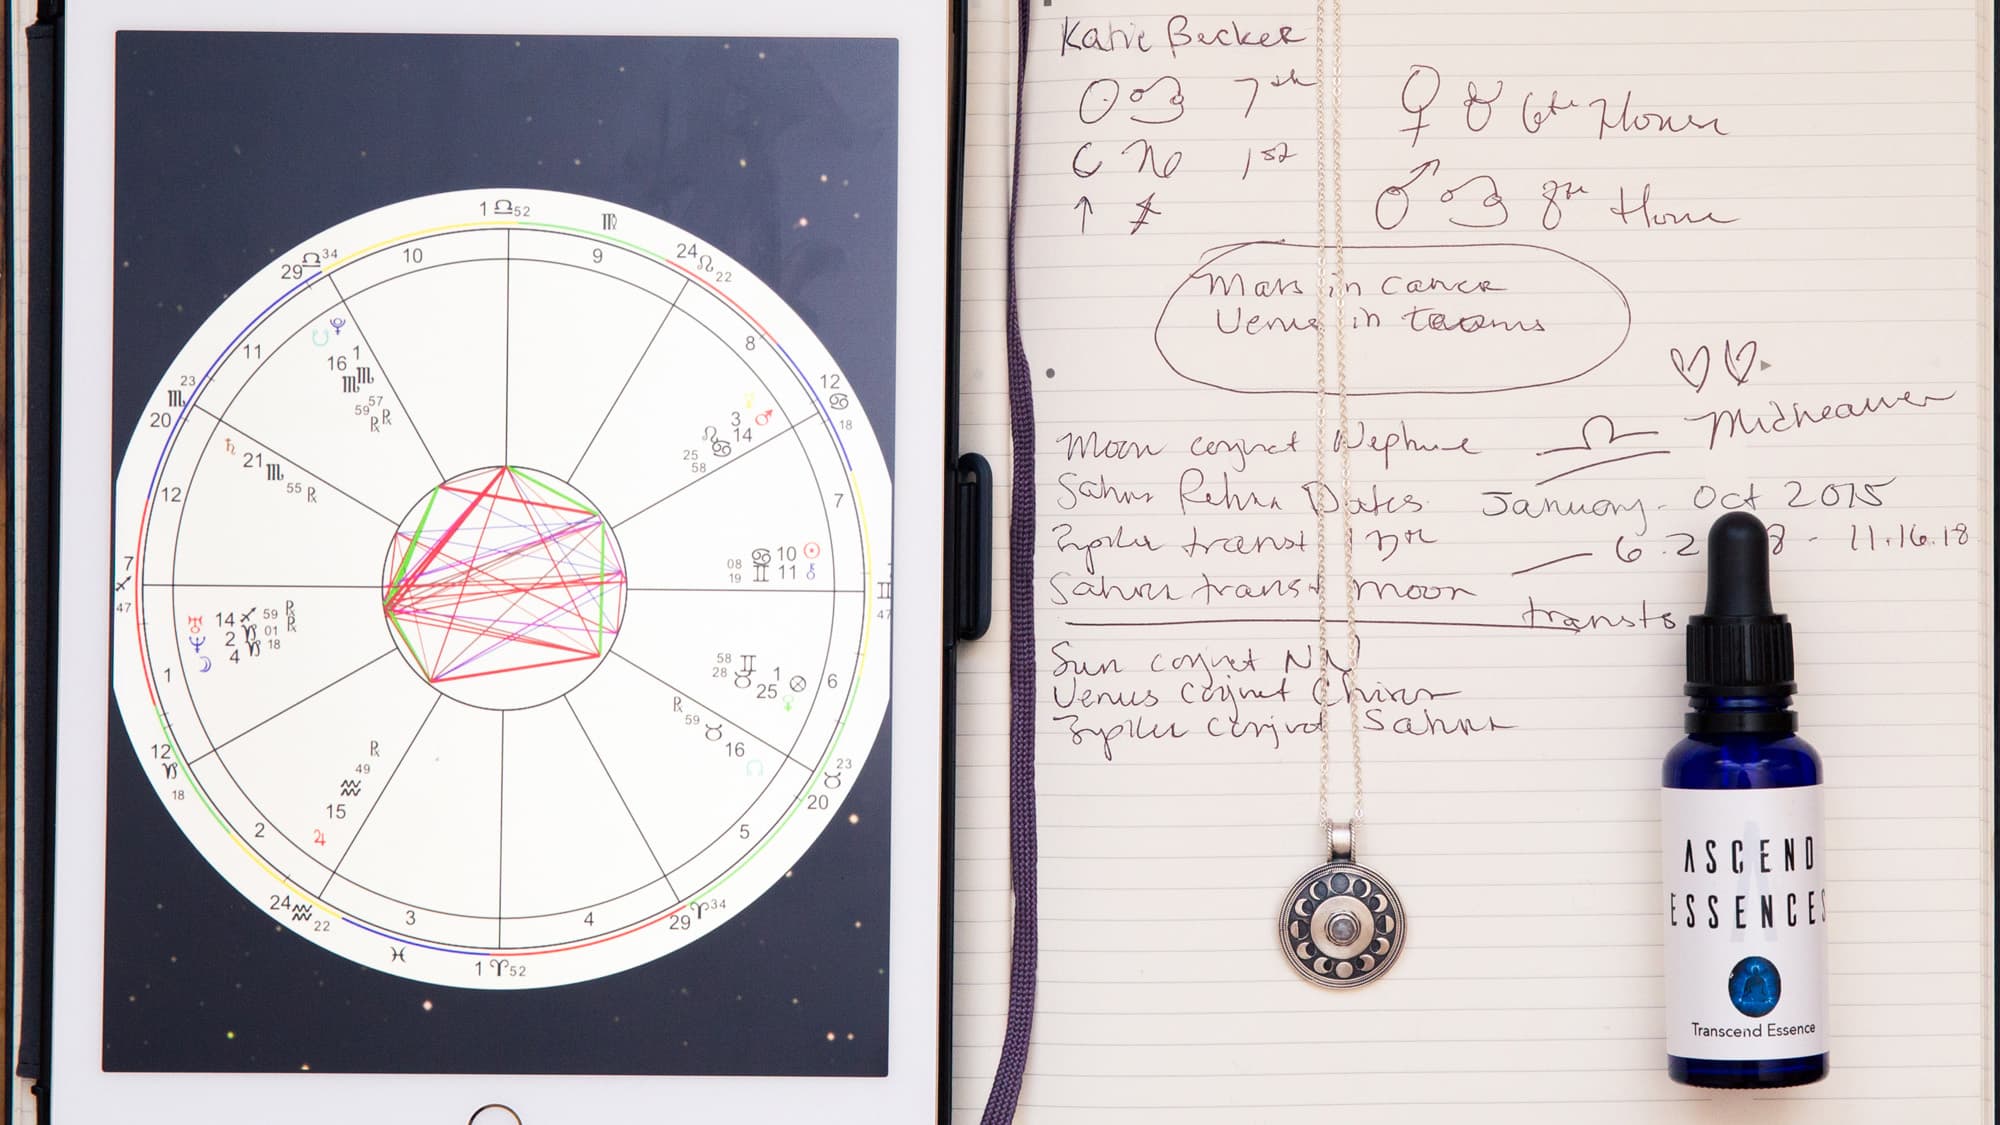 1 ♎ 52
♍
24 ♌ 22
29 ♎ 34
10
9
11
8
12 ♋ 18
23 ♏ 20
16 1
♏ ♏
59 57
℞ ℞
3
♌ 14
♋
25
58
♄ 21 ♏ 55 ℞
12
7
7 ♐ 47
08 ♋ 10 ☉
19 ♊ 11
♊ 47
14 ♐ 59 ℞
♆ 2 ♑ 01 ℞
☽ 4 ♑ 18
58 ♊ 1 ⊗
28 ♉ 25 ♀
1
6
℞ 59 ♉ 16 ☊
12 ♑ 18
℞
49
♒
15
♃
23 ♉ 20
2
5
24 ♒ 22
3
4
29 ♈ 34
♓
1 ♈ 52
Katie Becker
☉ ♋ 7th
♀ ♉ 6th House
☾ ♑ 1st
♂ ♋ 8th House
↑ ♐
Mars in Cancer
Venus in taurus
Moon conjnct Neptune
♎ Midheaven
Saturn Return Dates January - Oct 2015
transt 12th 6.2 8 - 11.16.18
Saturn transt moon
transts
Sun conjnct NN
Venus conjnct Chiron
conjnct Saturn
ASCEND
ESSENCES
Transcend Essence